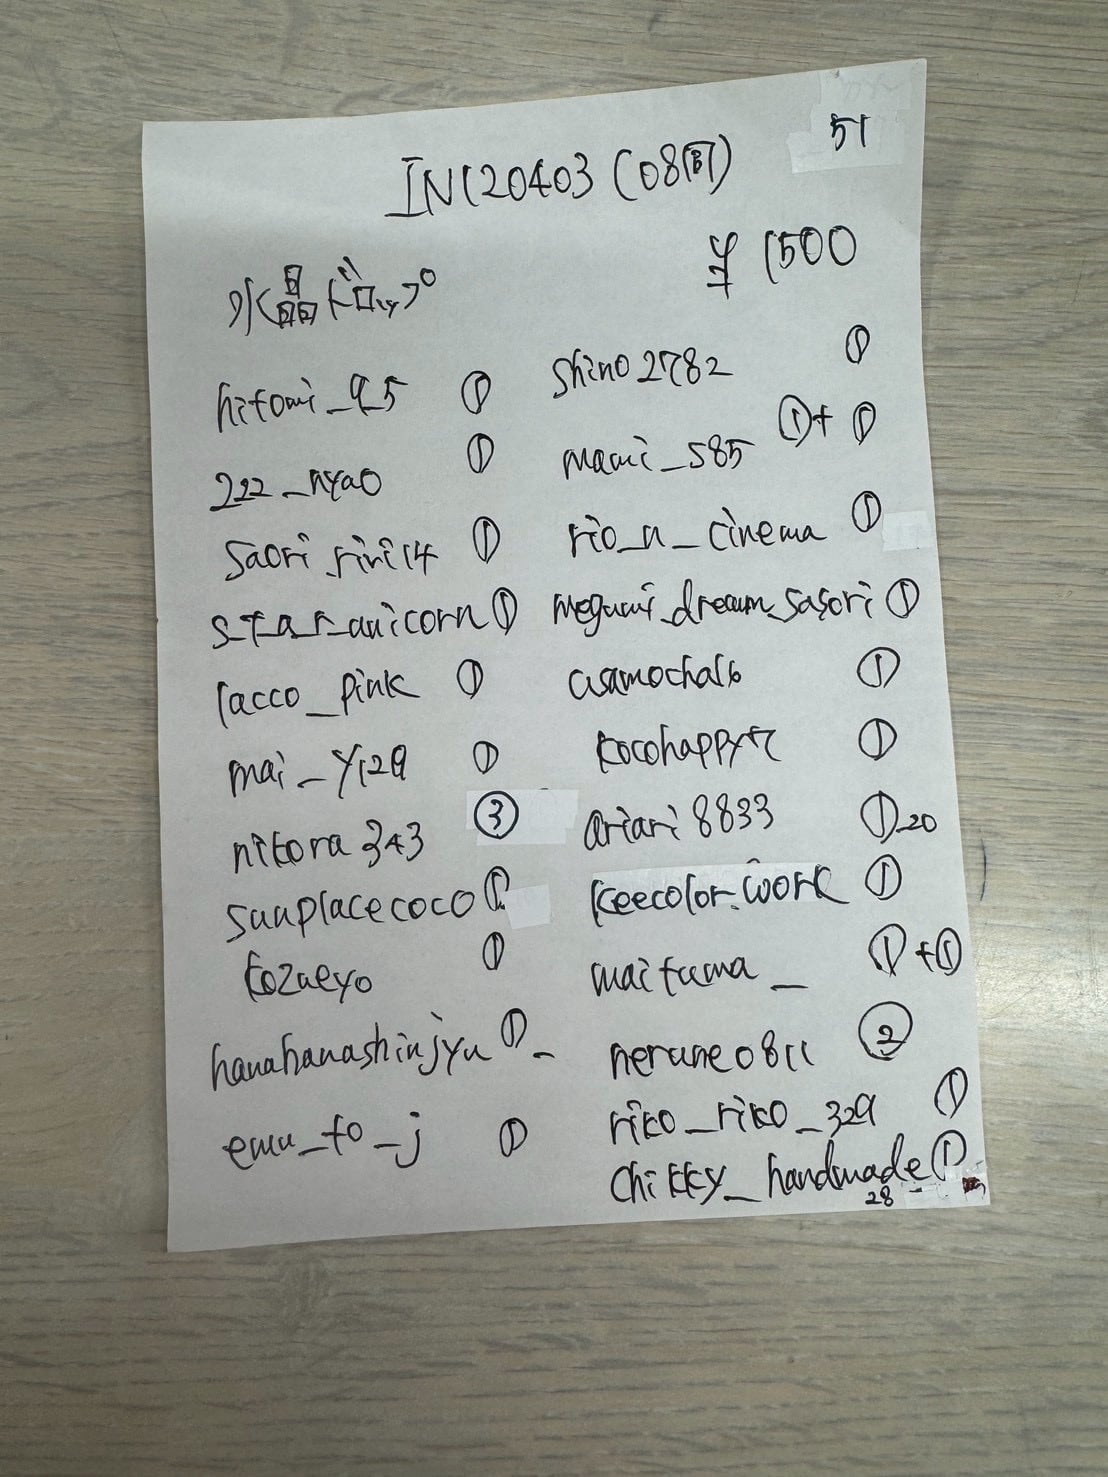 51
IN120403 (08南)
¥ 1500
水晶ドロップ
hitomi_95 ①
222_nyao ①
saori_riri14 ①
s_t_a_r_unicorn ①
racco_pink ①
mai_y129 ①
nikora343 ③
sunplacecoco ①
kozueyo ①
hanahanashinjyu ① -
emu_to_j ①
shino2782 ①
mami_585 ①+①
rio_n_cinema ①
megumi_dream_sasori ①
asamocha16 ①
kocohappy7 ①
ariari8833 ①-20
keecolor.work ①
maituma_ ①+①
nerune0811 ②
riko_riko_329 ①
chikky_handmade ①
28